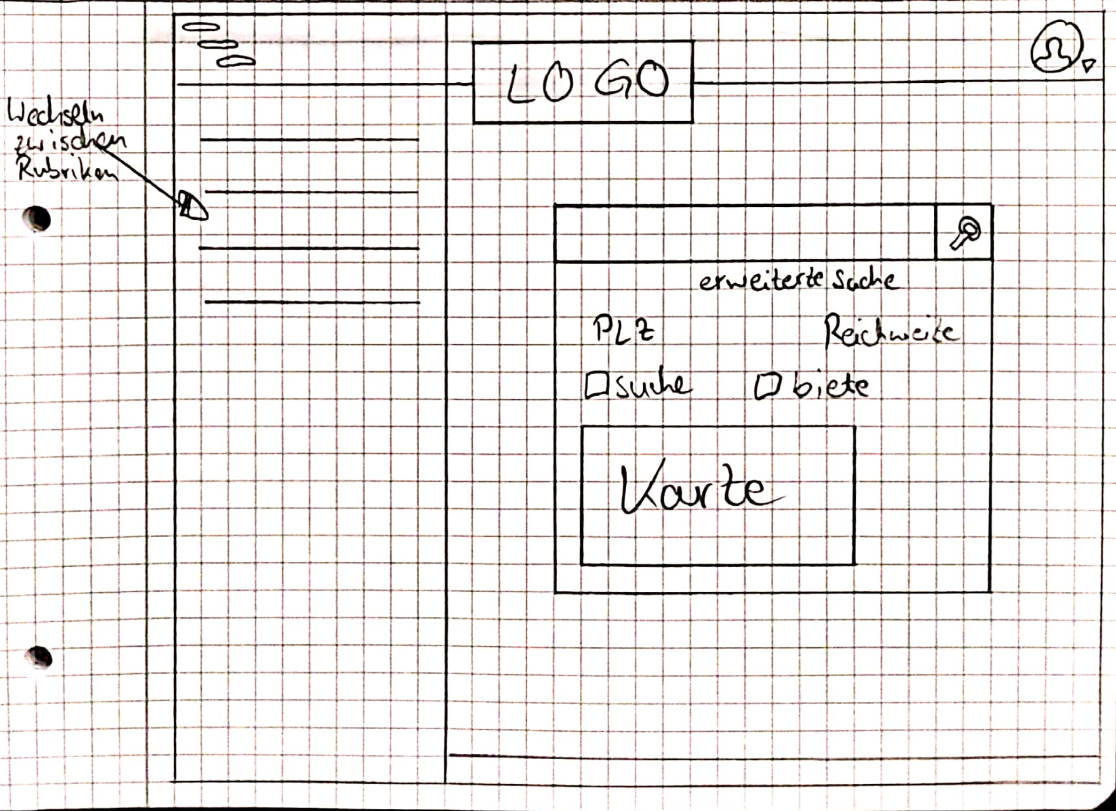 Wechseln
zwischen
Rubriken
LOGO
erweiterte Suche
PLZ
Reichweite
suche
biete
Karte